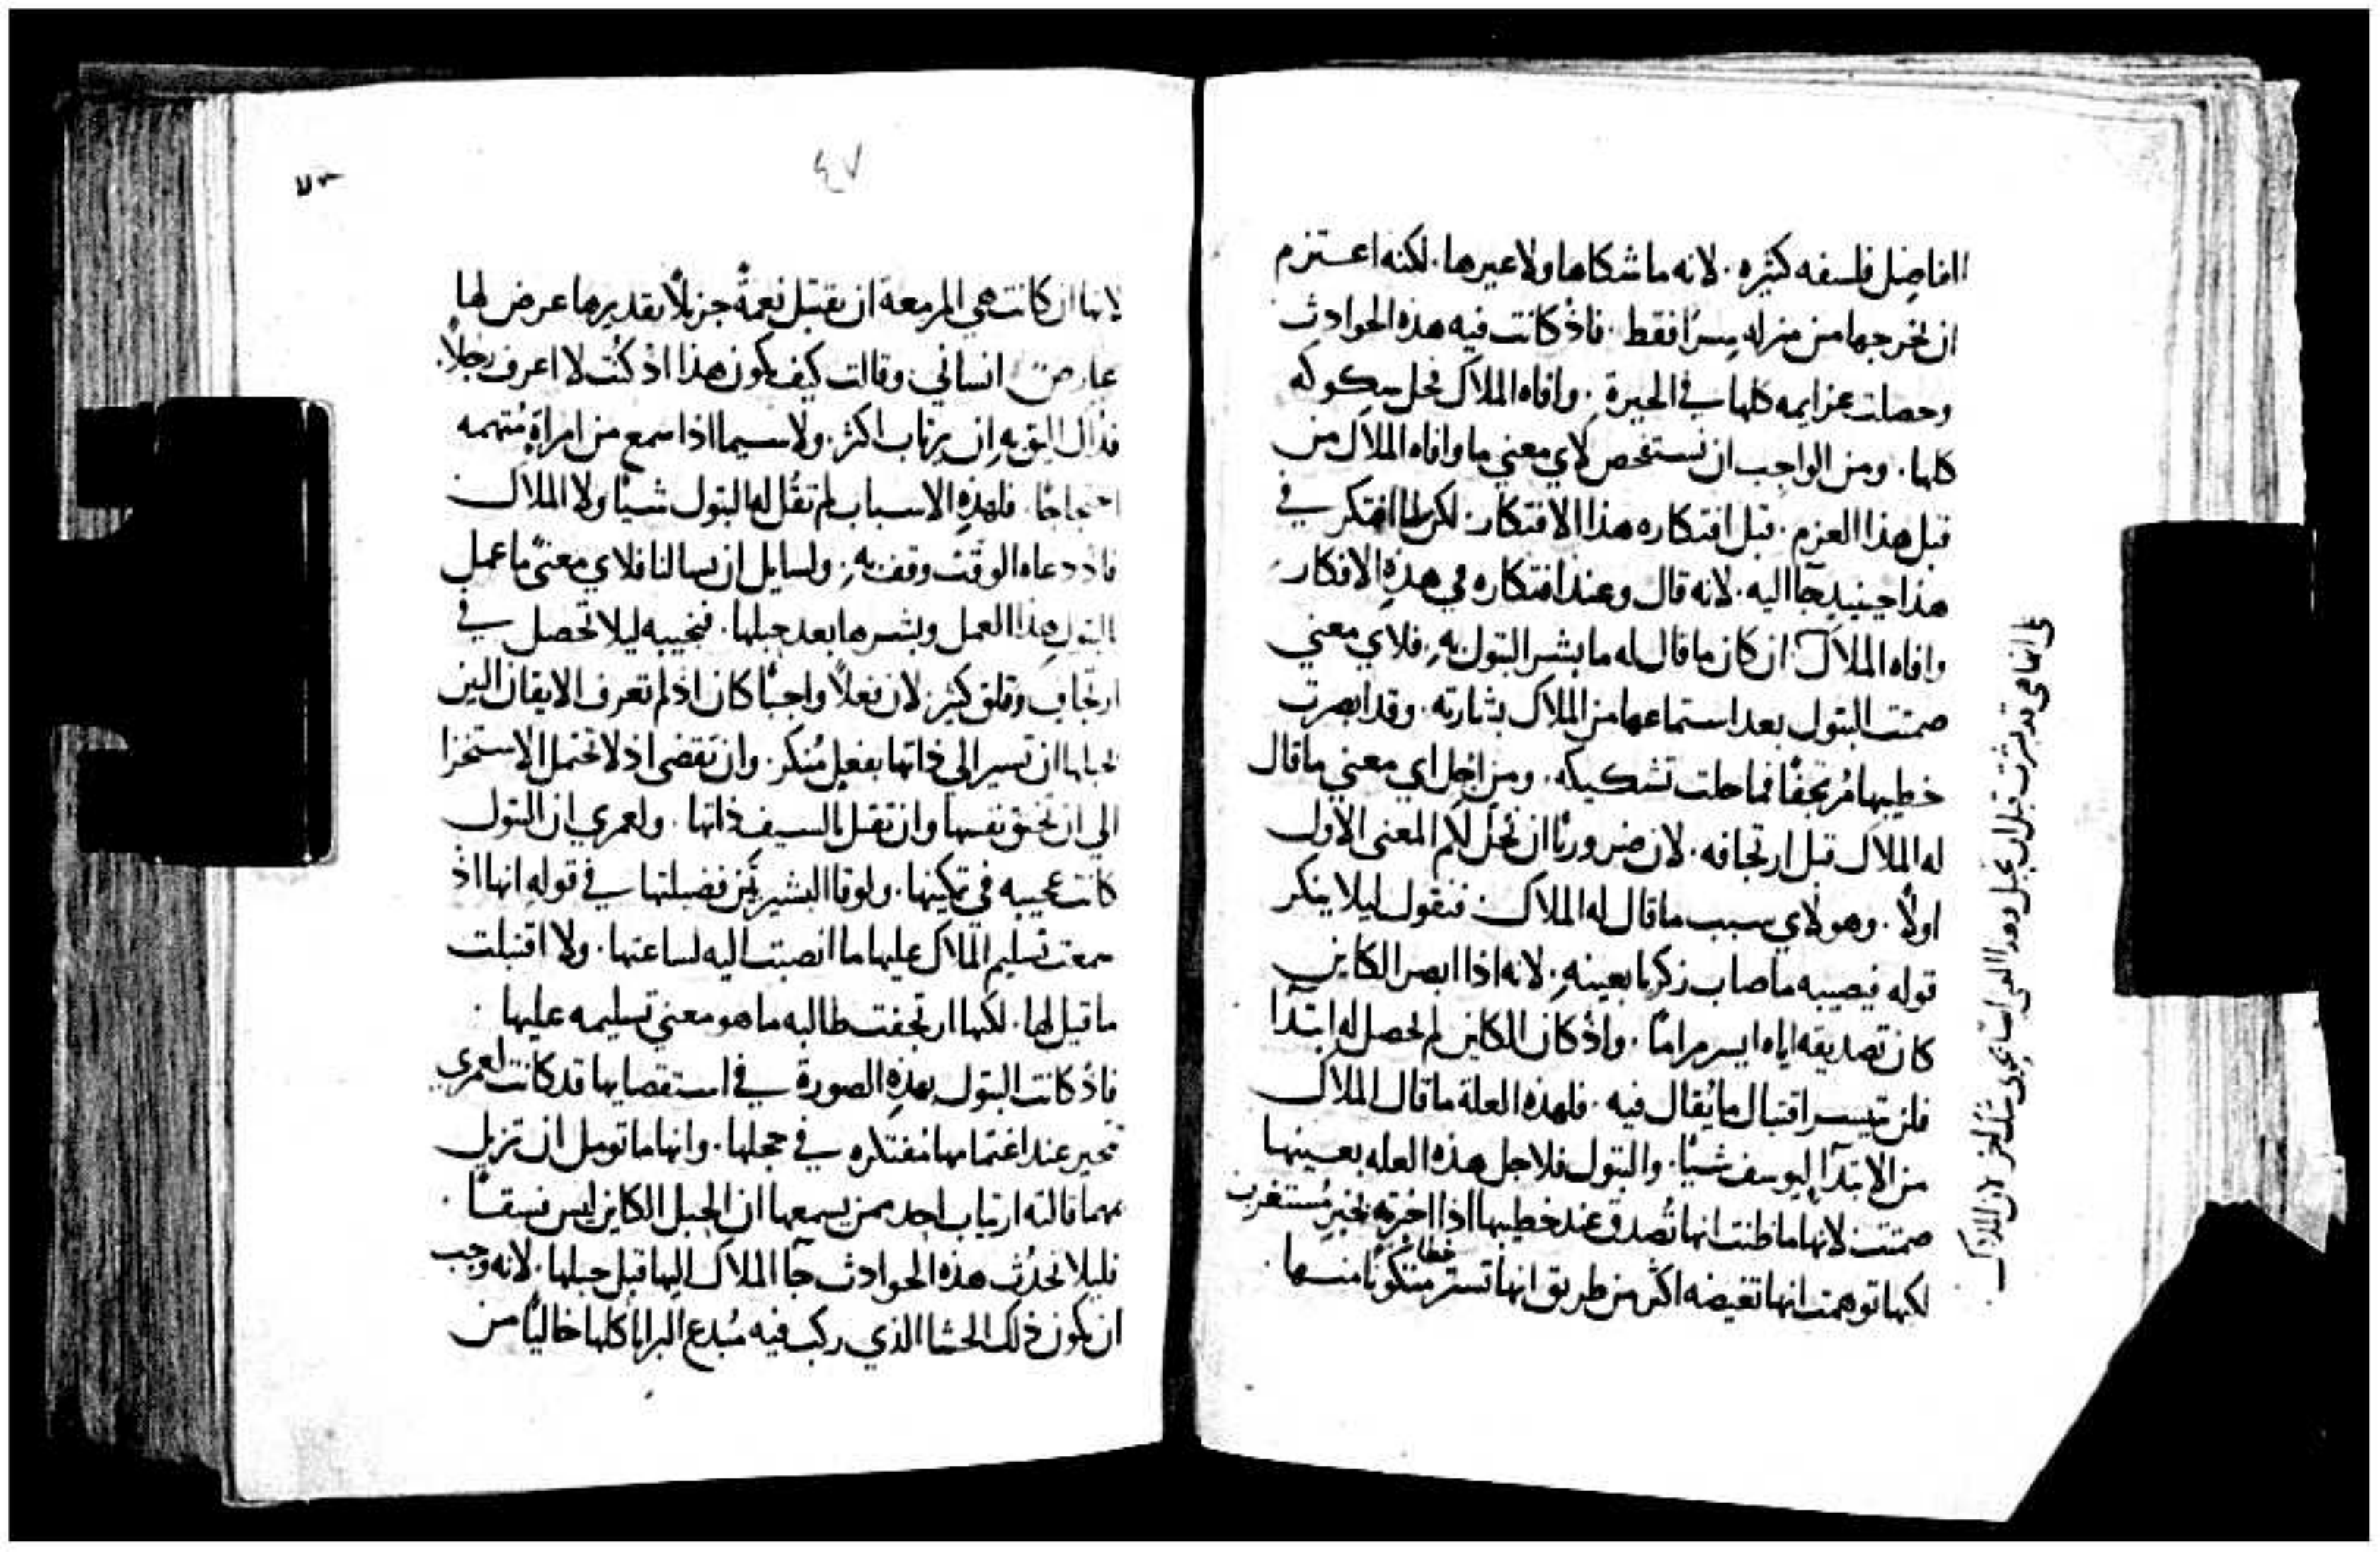 الفاضل فلسفه كثيره. لانه ما شكاها ولا عيرها. لكنه اعتزم
ان يخرجها من منزله سرًا فقط. فاذ كانت فيه هذه الحوادث
وحصلت عزايمه كلها في الحيرة. وافاه الملاك فحل شكوكه
كلها. ومن الواجب ان نستفحص لاي معني ما وافاه الملاك من
قبل هذا العزم. قبل افتكاره هذا الافتكار. لكن لما افتكر في
هذا حينيد جآ اليه. لانه قال وعند افتكاره في هذه الافكار
وافاه الملاك. ان كان ما قال له ما بشر البتول به. فلاي معني
صمتت البتول بعد استماعها من الملاك بشارته. وقد ابصرت
خطيبها مُرتجفًا فما حلت تشكيكه. ومن اجل اي معني ما قال
له الملاك قبل ارتجافه. لان ضروريًا ان نحل لكم المعني الاول
اولًا. وهو لاي سبب ما قال له الملاك. فنقول ليلا ينكر
قوله فيصيبه ما صاب زكريا بعينه. لانه اذا ابصر الكاين
كان تصديقه اياه ايسر مرامًا. واذ كان الكاين لم يحصل له ابتدآ
فلن تيسر اقتبال ما يُقال فيه. فلهذه العلة ما قال الملاك
من الابتدآ ليوسف شيًا. والبتول فلاجل هذه العله بعينها
صمتت. لانها ما ظنت انها تُصدق عند خطيبها اذا اخبرته بخبرٍ مُستغرب
لكنها توهمت انها تغيضه اكثر من طريق انها تستر خطا متكونًا منها.
قبل ان
الملاك
٤٧
لانها ان كانت هي المزمعة ان تقتبل نعمةً جزيلًا تقديرها عرض لها
عارض انساني. وقالت كيف يكون هذا اذ كنت لا اعرف رجلًا.
فذاك اليق به ان يرتاب اكثر. ولا سيما اذا سمع من امراةٍ مُتهمه
احتجاجًا. فلهذه الاسباب لم تقُل له البتول شيًا ولا الملاك
فاذ دعاه الوقت وقف به. ولسايل ان يسالنا فلاي معنيً ما عمل
بالبتول هذا العمل وبشرها بعد حبلها. فنجيبه ليلا تحصل في
ارتجافٍ وقلق كثير. لان فعلًا واجبًا كان اذ لم تعرف الايقان البين
لحبلها ان تسير الي ذاتها بفعلٍ مُنكر. وان تفضي اذ لا تحتمل الاستخزا
الي ان تخنق نفسها وان تقتل بالسيف ذاتها. ولعمري ان البتول
كانت عجيبه في تمكينها. ولوقا البشير بين فضيلتها في قوله انها اذ
سمعت تسليم الملاك عليها ما انصبت اليه لساعتها. ولا اقتبلت
ما قيل لها. لكنها ارتجفت طالبه ما هو معني تسليمه عليها.
فاذ كانت البتول بهذه الصورة في استقصايها قد كانت لعمري
تحير عند اغتمامها مفتكره في خجلها. وانها ما تومل ان تزيل
مهما قالته ارتياب احد ممن يسمعها ان الحبل الكاين ليس فسقًا.
فليلا تحدُث هذه الحوادث جآ الملاك اليها قبل حبلها. لانه وجب
ان يكون ذلك الحشا الذي ركب فيه مُبدع البرايا كلها خاليًا من